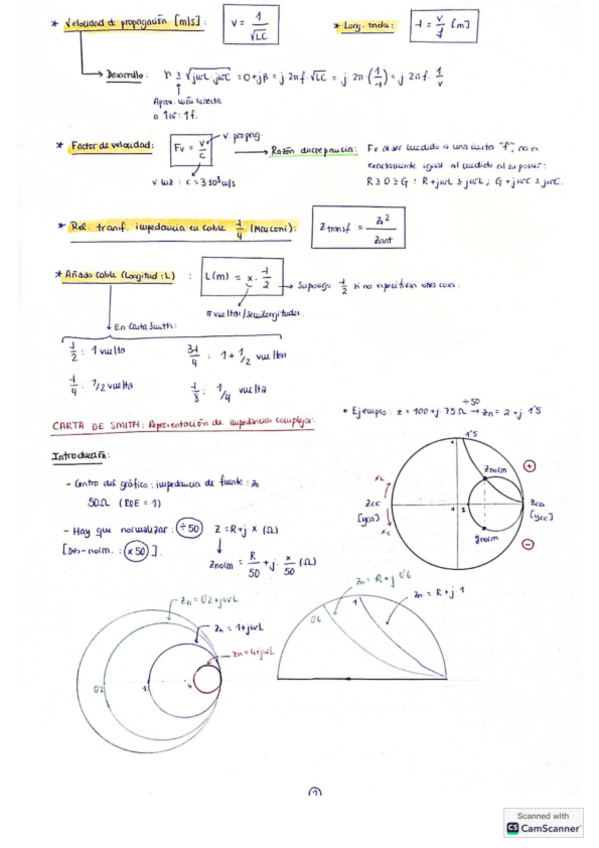 * Velocidad de propagación [m/s] : v = 1/√LC * Long. onda : λ = v/f [m]
Desarrollo : γ ≅ √jωL·jωC = 0+jβ = j 2πf·√LC = j 2π·(1/λ) = j 2πf·1/v
a 1ω : 1f.
* Factor de velocidad : Fv = v/c v. propag. Razón discrepancia : Fv al ser medido a una cierta "f", no es
exactamente igual al medido al suponer:
v luz : c = 3·10⁸ m/s R ≅ 0 ≅ G : R+jωL ≅ jωL ; G+jωC ≅ jωC.
* Rel. transf. impedancia en cable λ/4 (Marconi) : Ztransf = Zo²/Zant
* Añado cable (Longitud : L) : L(m) = x · λ/2 Supongo λ/2 si no especifican otra cosa.
nº vueltas/semilongitudes
En Carta Smith :
λ/2 : 1 vuelta 3λ/4 : 1 + 1/2 vueltas
λ/4 : 1/2 vuelta λ/8 : 1/4 vuelta
CARTA DE SMITH : Representación de impedancia compleja :
* Ejemplo : z = 100+j·75Ω ÷50 → Zn = 2 + j 1'5
Introducción :
- Centro del gráfico : impedancia de fuente : Zo
50Ω (ROE = 1)
- Hay que normalizar : ÷50 Z = R+j x (Ω)
[Des-norm. : x50].
Znorm = R/50 + j · x/50 (Ω)
1'5
Znorm
+
XL
Zcc
[Yca]
Xc
1
2
Zca
[Ycc]
Ynorm
-
Zn = 0'2+jωL
Zn = 1+jωL
Zn = 4+jωL
0'2
1
4
Zn = R+j 0'6
Zn = R+j·1
0'6
1
2
Scanned with
CS CamScanner